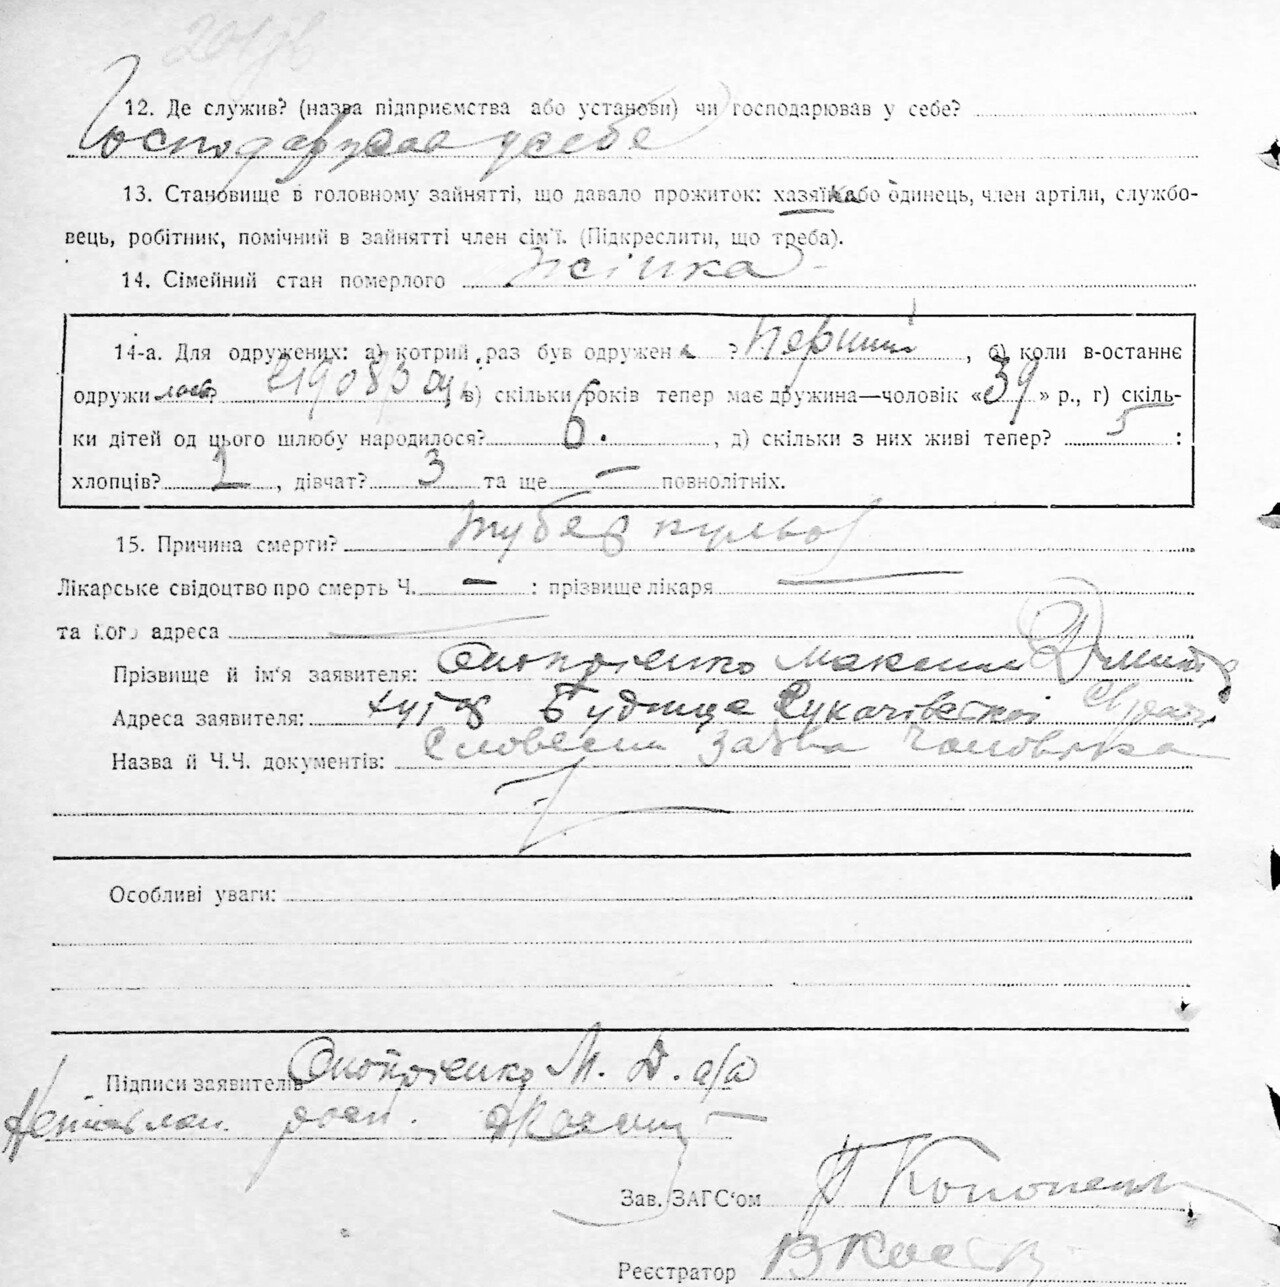 12. Де служив? (назва підприємства або установи) чи господарював у себе?
Господарювала у себе
13. Становище в головному зайнятті, що давало прожиток: хазяїка або одинець, член артіли, службо-
вець, робітник, помічний в зайнятті член сім'ї. (Підкреслити, що треба).
14. Сімейний стан померлого жінка
14-а. Для одружених: а) котрий раз був одружена ? Перший, б) коли в-останнє
одружилась? 1908 році в) скільки років тепер має дружина—чоловік «39» р., г) скіль-
ки дітей од цього шлюбу народилося? 6. , д) скільки з них живі тепер? 5 :
хлопців? 2, дівчат? 3 та ще — повнолітніх.
15. Причина смерти? туберкульоз
Лікарське свідоцтво про смерть Ч. — : прізвище лікаря —
та його адреса —
Прізвище й ім'я заявителя: Онопрієнко Максим Дмитр
Адреса заявителя: хутор Будище Сукачівської
Назва й Ч.Ч. документів: Словесна заява чоловіка
Особливі уваги:
Підписи заявителів Онопрієнко М. Д. а/а
Неписьмен. росп.
Зав. ЗАГС'ом Кононенко
Реєстратор